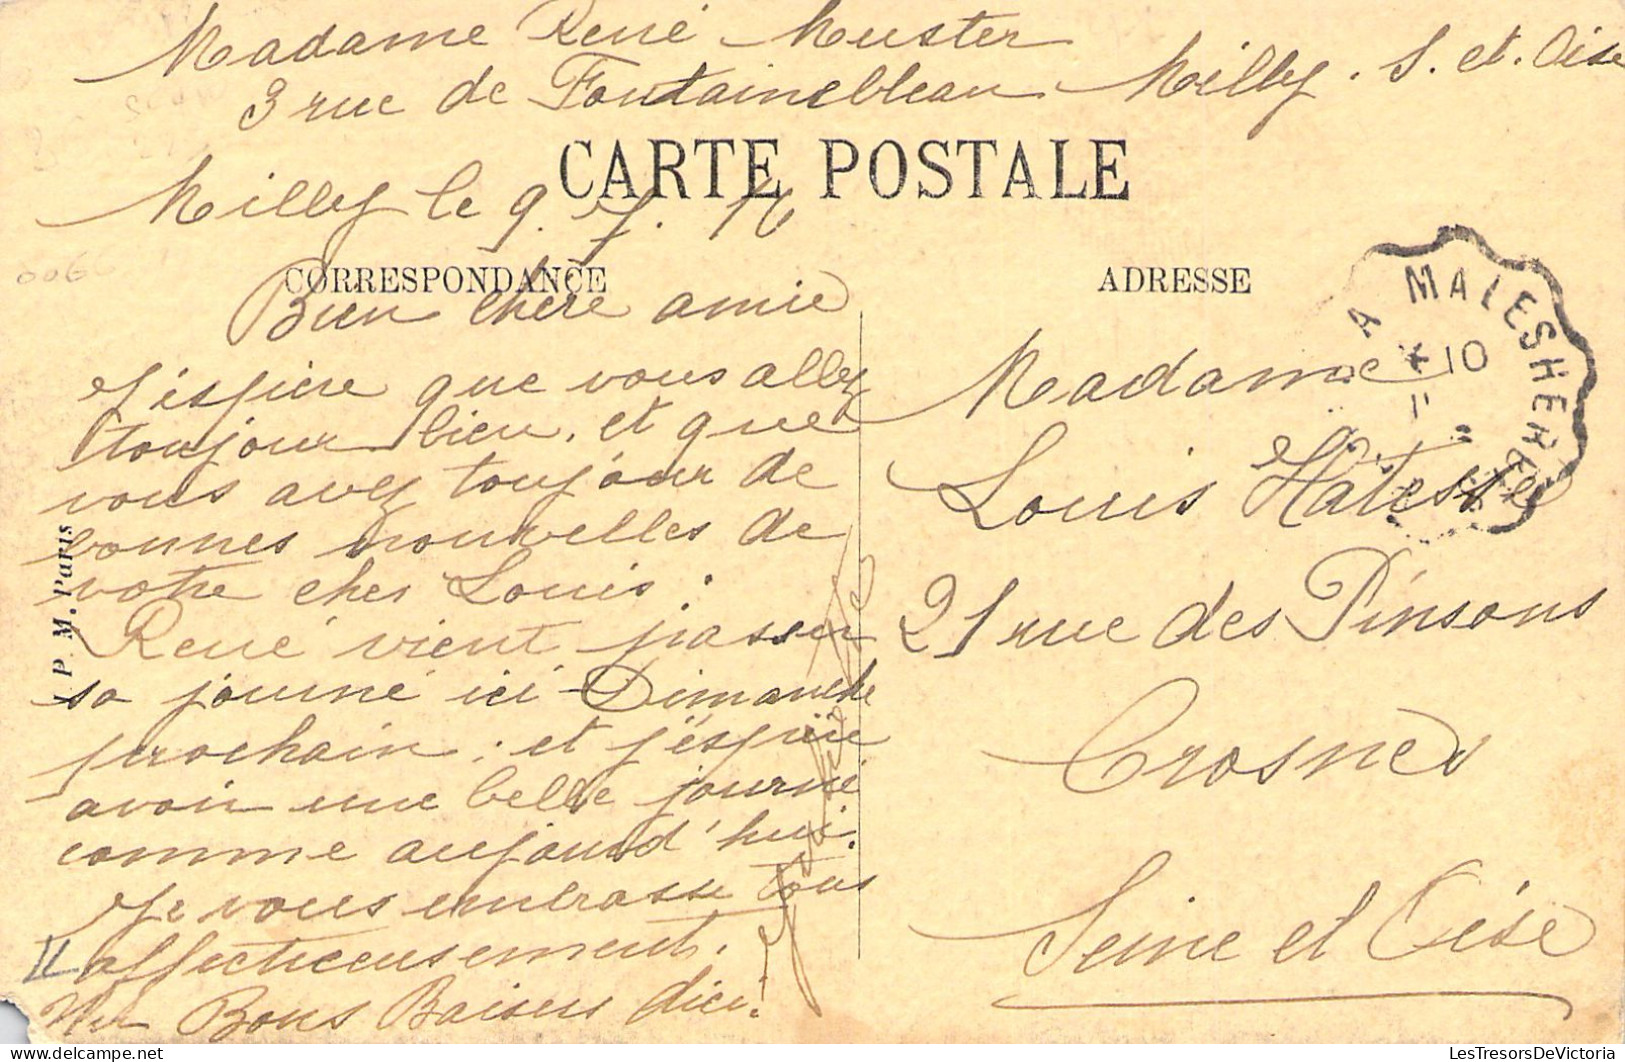 Madame René Muster
3 rue de Fontainebleau Milly. S. et. Oise
CARTE POSTALE
Milly le 9. 7. 16
CORRESPONDANCE
ADRESSE
Bien chère amie
J'espière que vous allez
toujour bien. et que
vous avez toujour de
bonnes nouvelles de
votre cher Louis.
René vient passer
sa journé ici Dimanche
prochain. et j'éspière
avoir une belle journé
comme aujourd'hui.
Je vous embrasse tous
affectueusement.
Bons Baisers
Madame
Louis Hatesse
21 rue des Pinsons
Crosnes
Seine et Oise
A MALESHERBES
10
11
I P. M. Paris
006
LesTresorsDeVictoria